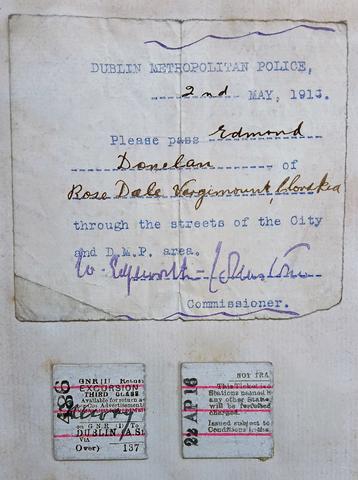 DUBLIN METROPOLITAN POLICE,
2nd MAY, 1916.
Please pass Edmond
Donelan of
Rose Dale Vergimount, Clonskea
through the streets of the City
and D.M.P. area.
W. Edgeworth-Johnstone
Commissioner.
GNR(I) Return
EXCURSION
THIRD CLASS
Available for return a
per Co.s Advertisement
on GNR (I) To
DUBLIN (A.St
VIA
Over) 137
NOT TRA
This Ticket is
Stations named h
any other Stati
will be forfeited
charged.
Issued subject to
Conditions in the
22 AP 16